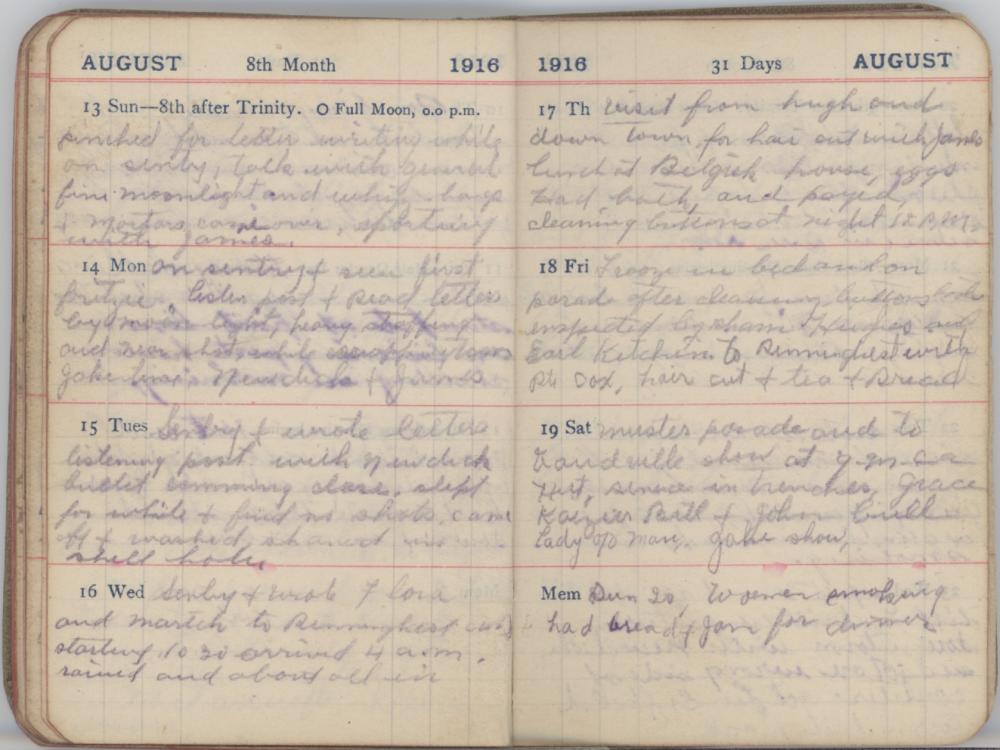 AUGUST 8th Month 1916
13 Sun—8th after Trinity. O Full Moon, 0.0 p.m.
pinched for letter writing while
on sentry, talk with general
fine moonlight and whizz bangs
+ mortars came over, sporting
with James.
14 Mon on sentry + seen first
fritzie, listen post + read letters
by moon light, heavy straffing
and near shot while
Jake time Newdick + James
15 Tues Sentry + wrote letters
listening post with Newdick
bullet comming close, slept
for while + fired no shots, came
off + washed, shaved in
shell hole,
16 Wed Sentry + wrote Flora
and march to Renninghest
starting 10 30 arrived 4 a.m.
rained and about all in
1916 31 Days AUGUST
17 Th visit from hugh and
down town for hair cut with James
lunch at Belgiek house, eggs
had bath, and payed,
cleaning buttons at night
18 Fri Frooze in bed and on
parade after cleaning buttons
inspected by sham Hughes and
Earl Kitchin to Renninghest with
Pte Cox, hair cut + tea + Bread
19 Sat muster parade and to
Vaudville show at Y.M.C.A
Hut, scence in trenches, Grace
Kaizier Bill + John bull
lady o/o man, Jake show,
Mem Sun 20, Women smoking
had bread + Jam for dinner